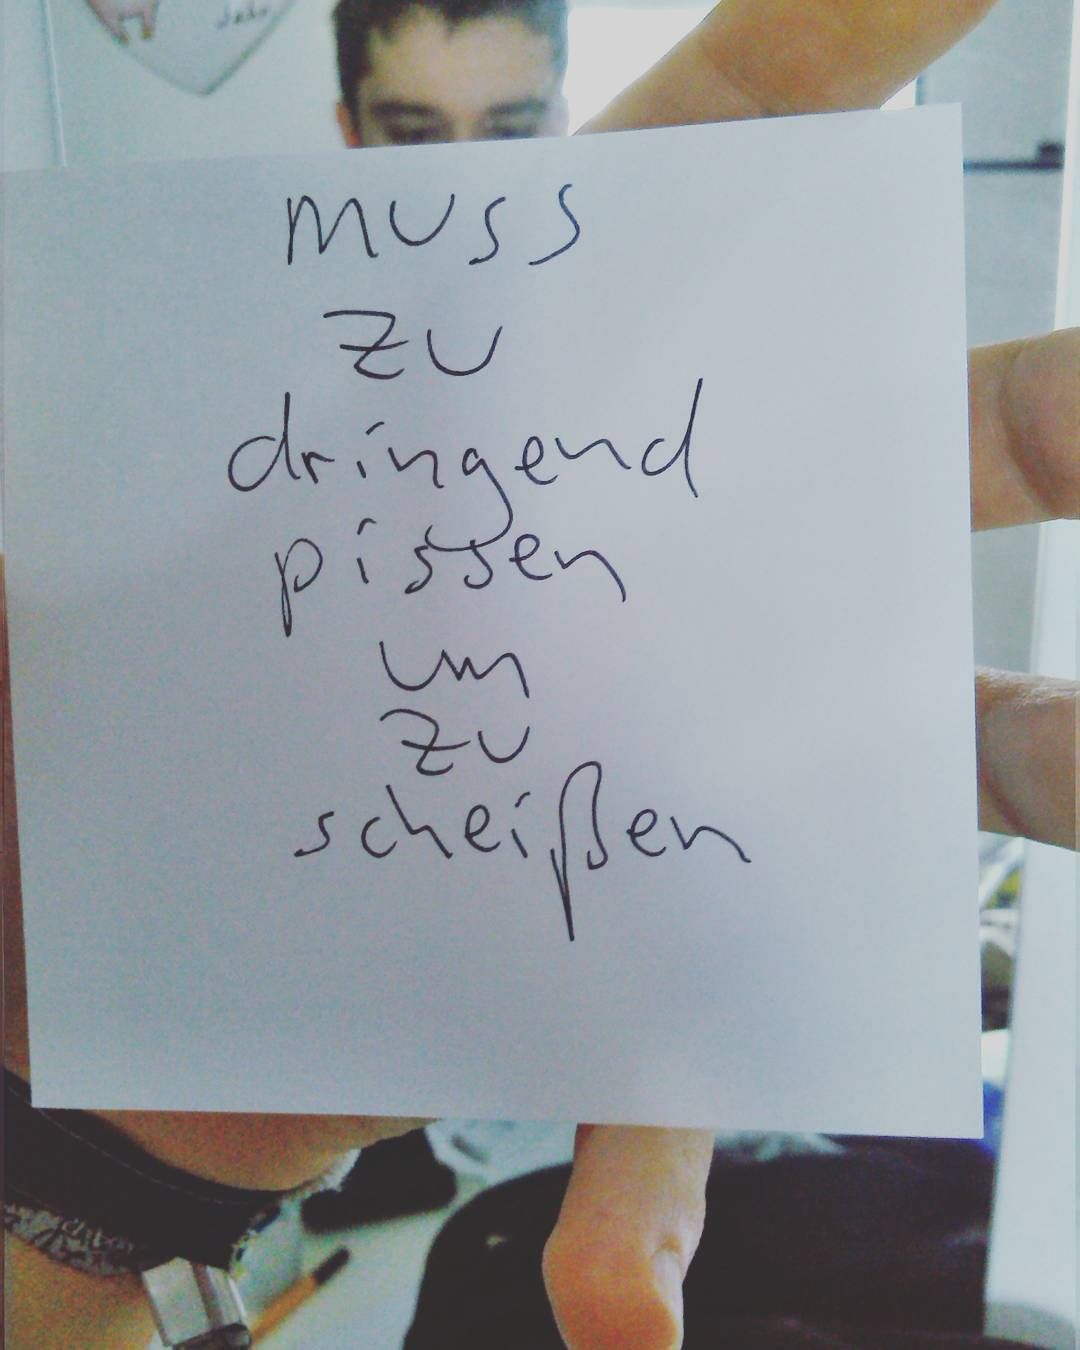 muss
zu
dringend
pissen
um
zu
scheißen